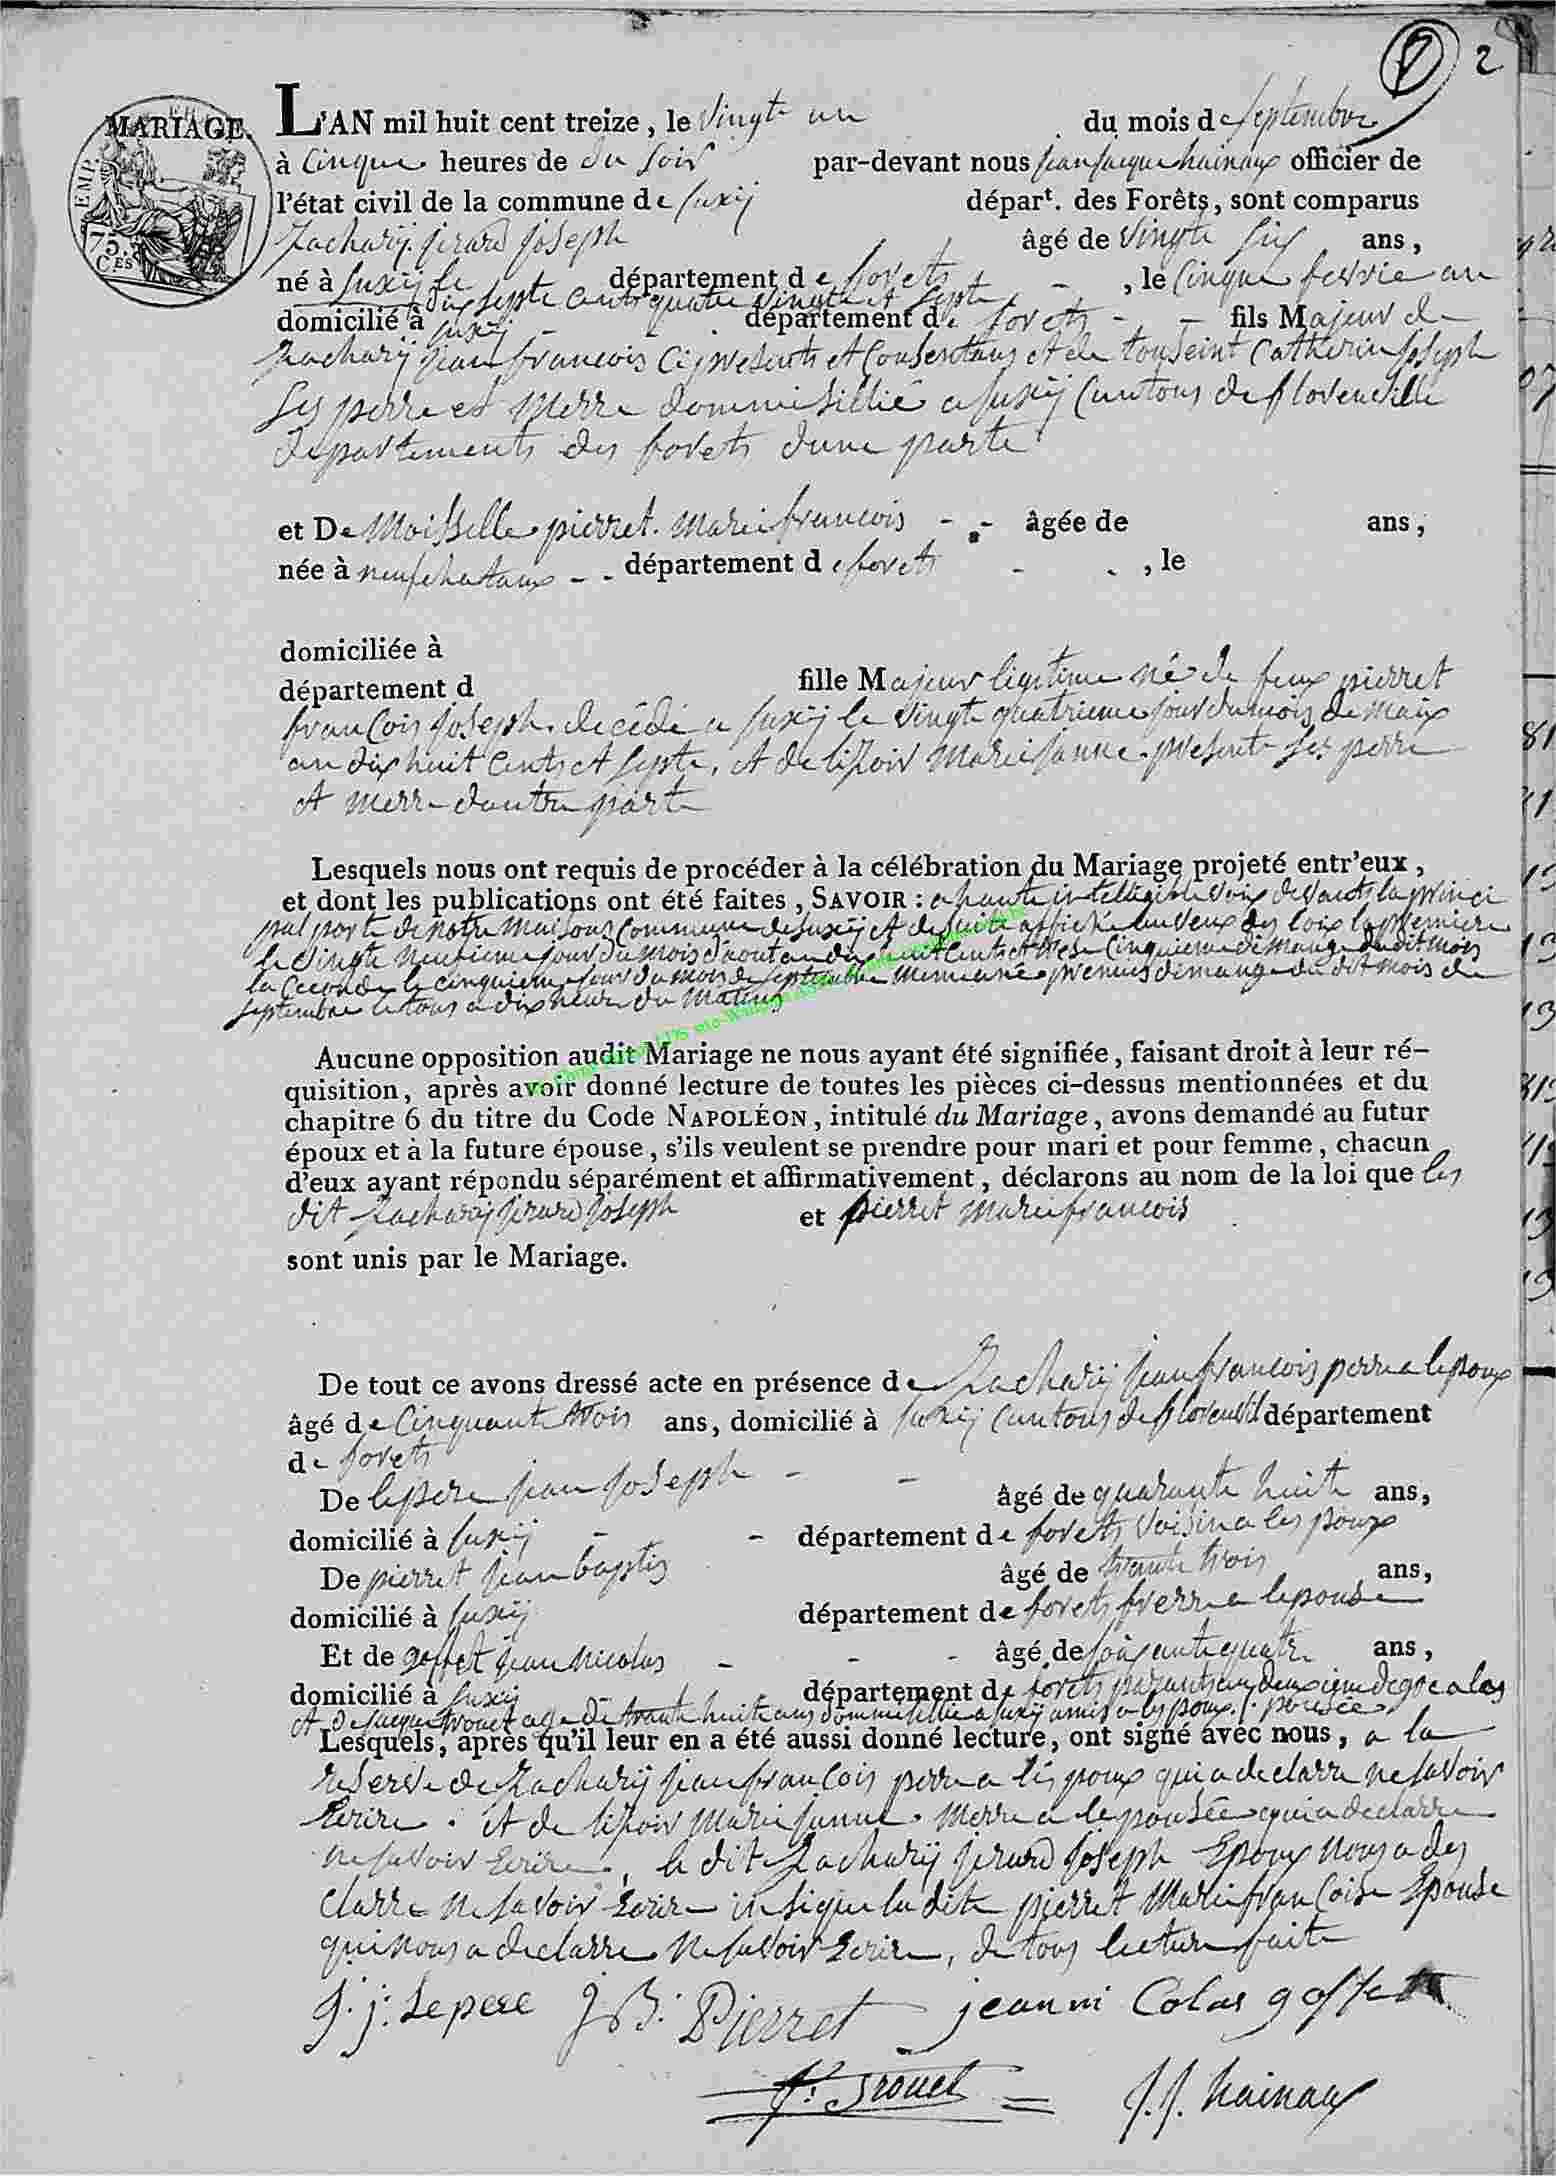 2
MARIAGE.
EMP.
75.
CES
L'AN mil huit cent treize, le vingte un du mois de septembre
à cinque heures de du soir par-devant nous jean jacque hainaux officier de
l'état civil de la commune de suxij départ. des Forêts, sont comparus
Zacharij jerard joseph âgé de vingte six ans,
né à suxij le département de forets - , le cinque fevrie an
dix septe cents quatre vingte et septe
domicilié à suxij - département de forets - - fils Majeur de
Zacharij jean francois ci present et consentans et de touseint catherin joseph
ses perre et merre dommisillié a suxij cantons de florenville
departements des forets dune parte
et De Moisselle pierret. marei francois - - âgée de ans,
née à neufchataux - - département de forets - - , le
domiciliée à
département d fille Majeur ligitime né de feux pierret
francois joseph. decédé a suxij le vingte quatrieme jour du mois de maix
an dix huit cents et septe, et de lizoir marei janne. presente ses perre
et merre dautre parte
Lesquels nous ont requis de procéder à la célébration du Mariage projeté entr'eux,
et dont les publications ont été faites, SAVOIR : a haute intelligible voix devant la princi
pal porte de notre maisons commune de suxij et de suite affiché au veux des loix la premiere
le vingte neuvieme jour du mois d'aout an dix huit cents et trese cinquieme dimange du dit mois
la ceconde le cinquieme jour du mois de septembre meme anné premies dimange du dit mois de
septembre le tous a dix heure du matins
Aucune opposition audit Mariage ne nous ayant été signifiée, faisant droit à leur ré-
quisition, après avoir donné lecture de toutes les pièces ci-dessus mentionnées et du
chapitre 6 du titre du Code NAPOLÉON, intitulé du Mariage, avons demandé au futur
époux et à la future épouse, s'ils veulent se prendre pour mari et pour femme, chacun
d'eux ayant répondu séparément et affirmativement, déclarons au nom de la loi que les
dit Zacharij jerard joseph et pierret marei francois
sont unis par le Mariage.
De tout ce avons dressé acte en présence de Zacharij jean francois perre a lepoux
âgé de cinquante trois ans, domicilié à suxij cantons de florenvil département
de forets
De lepere jean joseph - - âgé de quarante huite ans,
domicilié à suxij - - département de forets voisin a les poux
De pierret jean baptis âgé de trante trois ans,
domicilié à suxij département de forets frerre a lepouse
Et de goffet jean nicolas - - - âgé de soixante quatre ans,
domicilié à suxij département de forets parants au deuxieme degre a les
et de jacque trouet age de trante huite ans dommisillie a suxij amis a les poux
Lesquels, après qu'il leur en a été aussi donné lecture, ont signé avec nous, a la
reserve de Zacharij jean francois perre a lepoux qui a declarre ne savoir
ecrire. et de lizoir marei janne. merre a lepousée qui a declarre
ne savoir ecrire, le dit Zacharij jerard joseph epoux nous a de
clarre ne savoir ecrire insique la dite pierret marei francoise epouse
qui nous a declarre ne savoir ecrire, de tous lecture faite
J. j: Lepere J B: Pierret jeanni Colas goffet
J: trouet J. J. hainaux